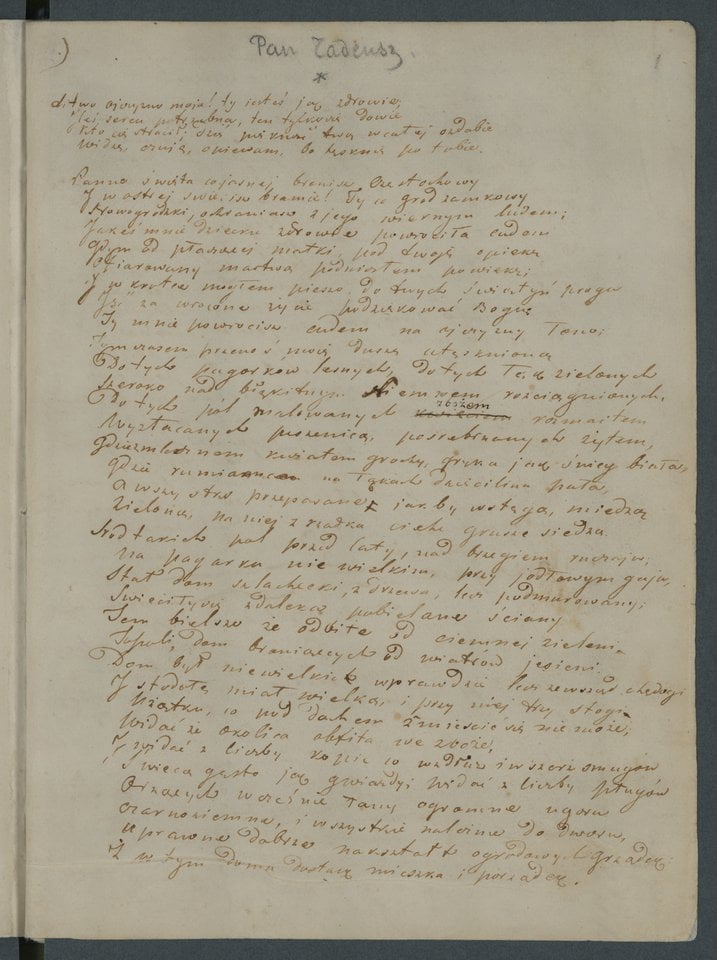 1
Pan Tadeusz.
*
Litwo ojczyzno moja! ty jesteś jak zdrowie,
cenić, ten tylko się dowie
Kto cię stracił; dziś piękność twą w całej ozdobie
Widzę, opiewam, bo tęsknię po tobie.
Panno święta co jasnej bronisz Częstochowy
I w ostrej świecisz bramie! Ty co gród zamkowy
Nowogrodzki, ochraniasz z jego wiernym ludem;
Jak mnie dziecko do zdrowia powróciła cudem
Gdym od płaczącej matki, pod twoją opiekę
Ofiarowany martwą podniosłem powiekę;
I wkrótce mogłem pieszo, do twych świątyń progu
Iść za wrócone życie podziękować Bogu
Ty mnie powrócisz cudem na ojczyzny łono:
Tymczasem przenoś moją duszę utęsknioną
Do tych pagórków leśnych, do tych łąk zielonych
Szeroko nad błękitnym Niemnem rozciągnionych,
Do tych pól malowanych zbożem rozmaitem
Wyzłacanych pszenicą, posrebrzanych żytem,
kwiatem grochy, gryka jak śnieg biała,
Gdzie na łąkach dzięcielina pała,
A wszystko przepasane jakby wstęgą, miedzą
Zieloną, na niej z rzadka ciche grusze siedzą
Śród takich pól przed laty, nad brzegiem ruczaju;
Na pagórku niewielkim, przy jodłowym gaju,
Stał dom szlachecki, z drzewa, lecz podmurowany;
Świeciły się z daleka pobielane ściany
Tem bielsze że odbite od ciemnej zieleni
Topoli, dom broniących od wiatrów jesieni
Dom był niewielki wprawdzie lecz zewsząd chędogi
I stodołę miał wielką, i przy niej trzy stogi
Użątku, co pod dachem zmieścić się nie może;
Widać że okolica obfita we zboże,
I widać z liczby kopic co wzdłuż i wszerz smugów
Świecą gęsto jak gwiazdy; widać z liczby pługów
Orzących wcześnie łany ogromne ugoru
Czarnoziemne, i wszystkie należne do dworu,
Uprawne dobrze nakształt ogrodowych grządek:
I w tym domu dostatek mieszka i porządek.